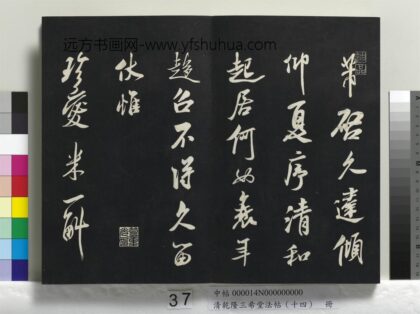 芾启久違傾
仰夏序清和
起居何如衰年
趍召不得久留
伏惟
珍愛 米一斛
远方书画网-www.yfshuhua.com
37
中帖 000014N000000000
清乾隆三希堂法帖(十四) 冊